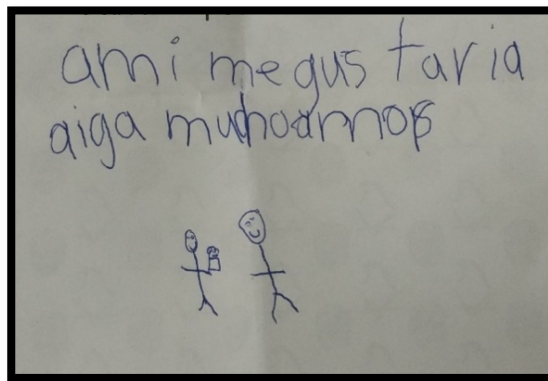 ami me gus taria
aiga muchoamor